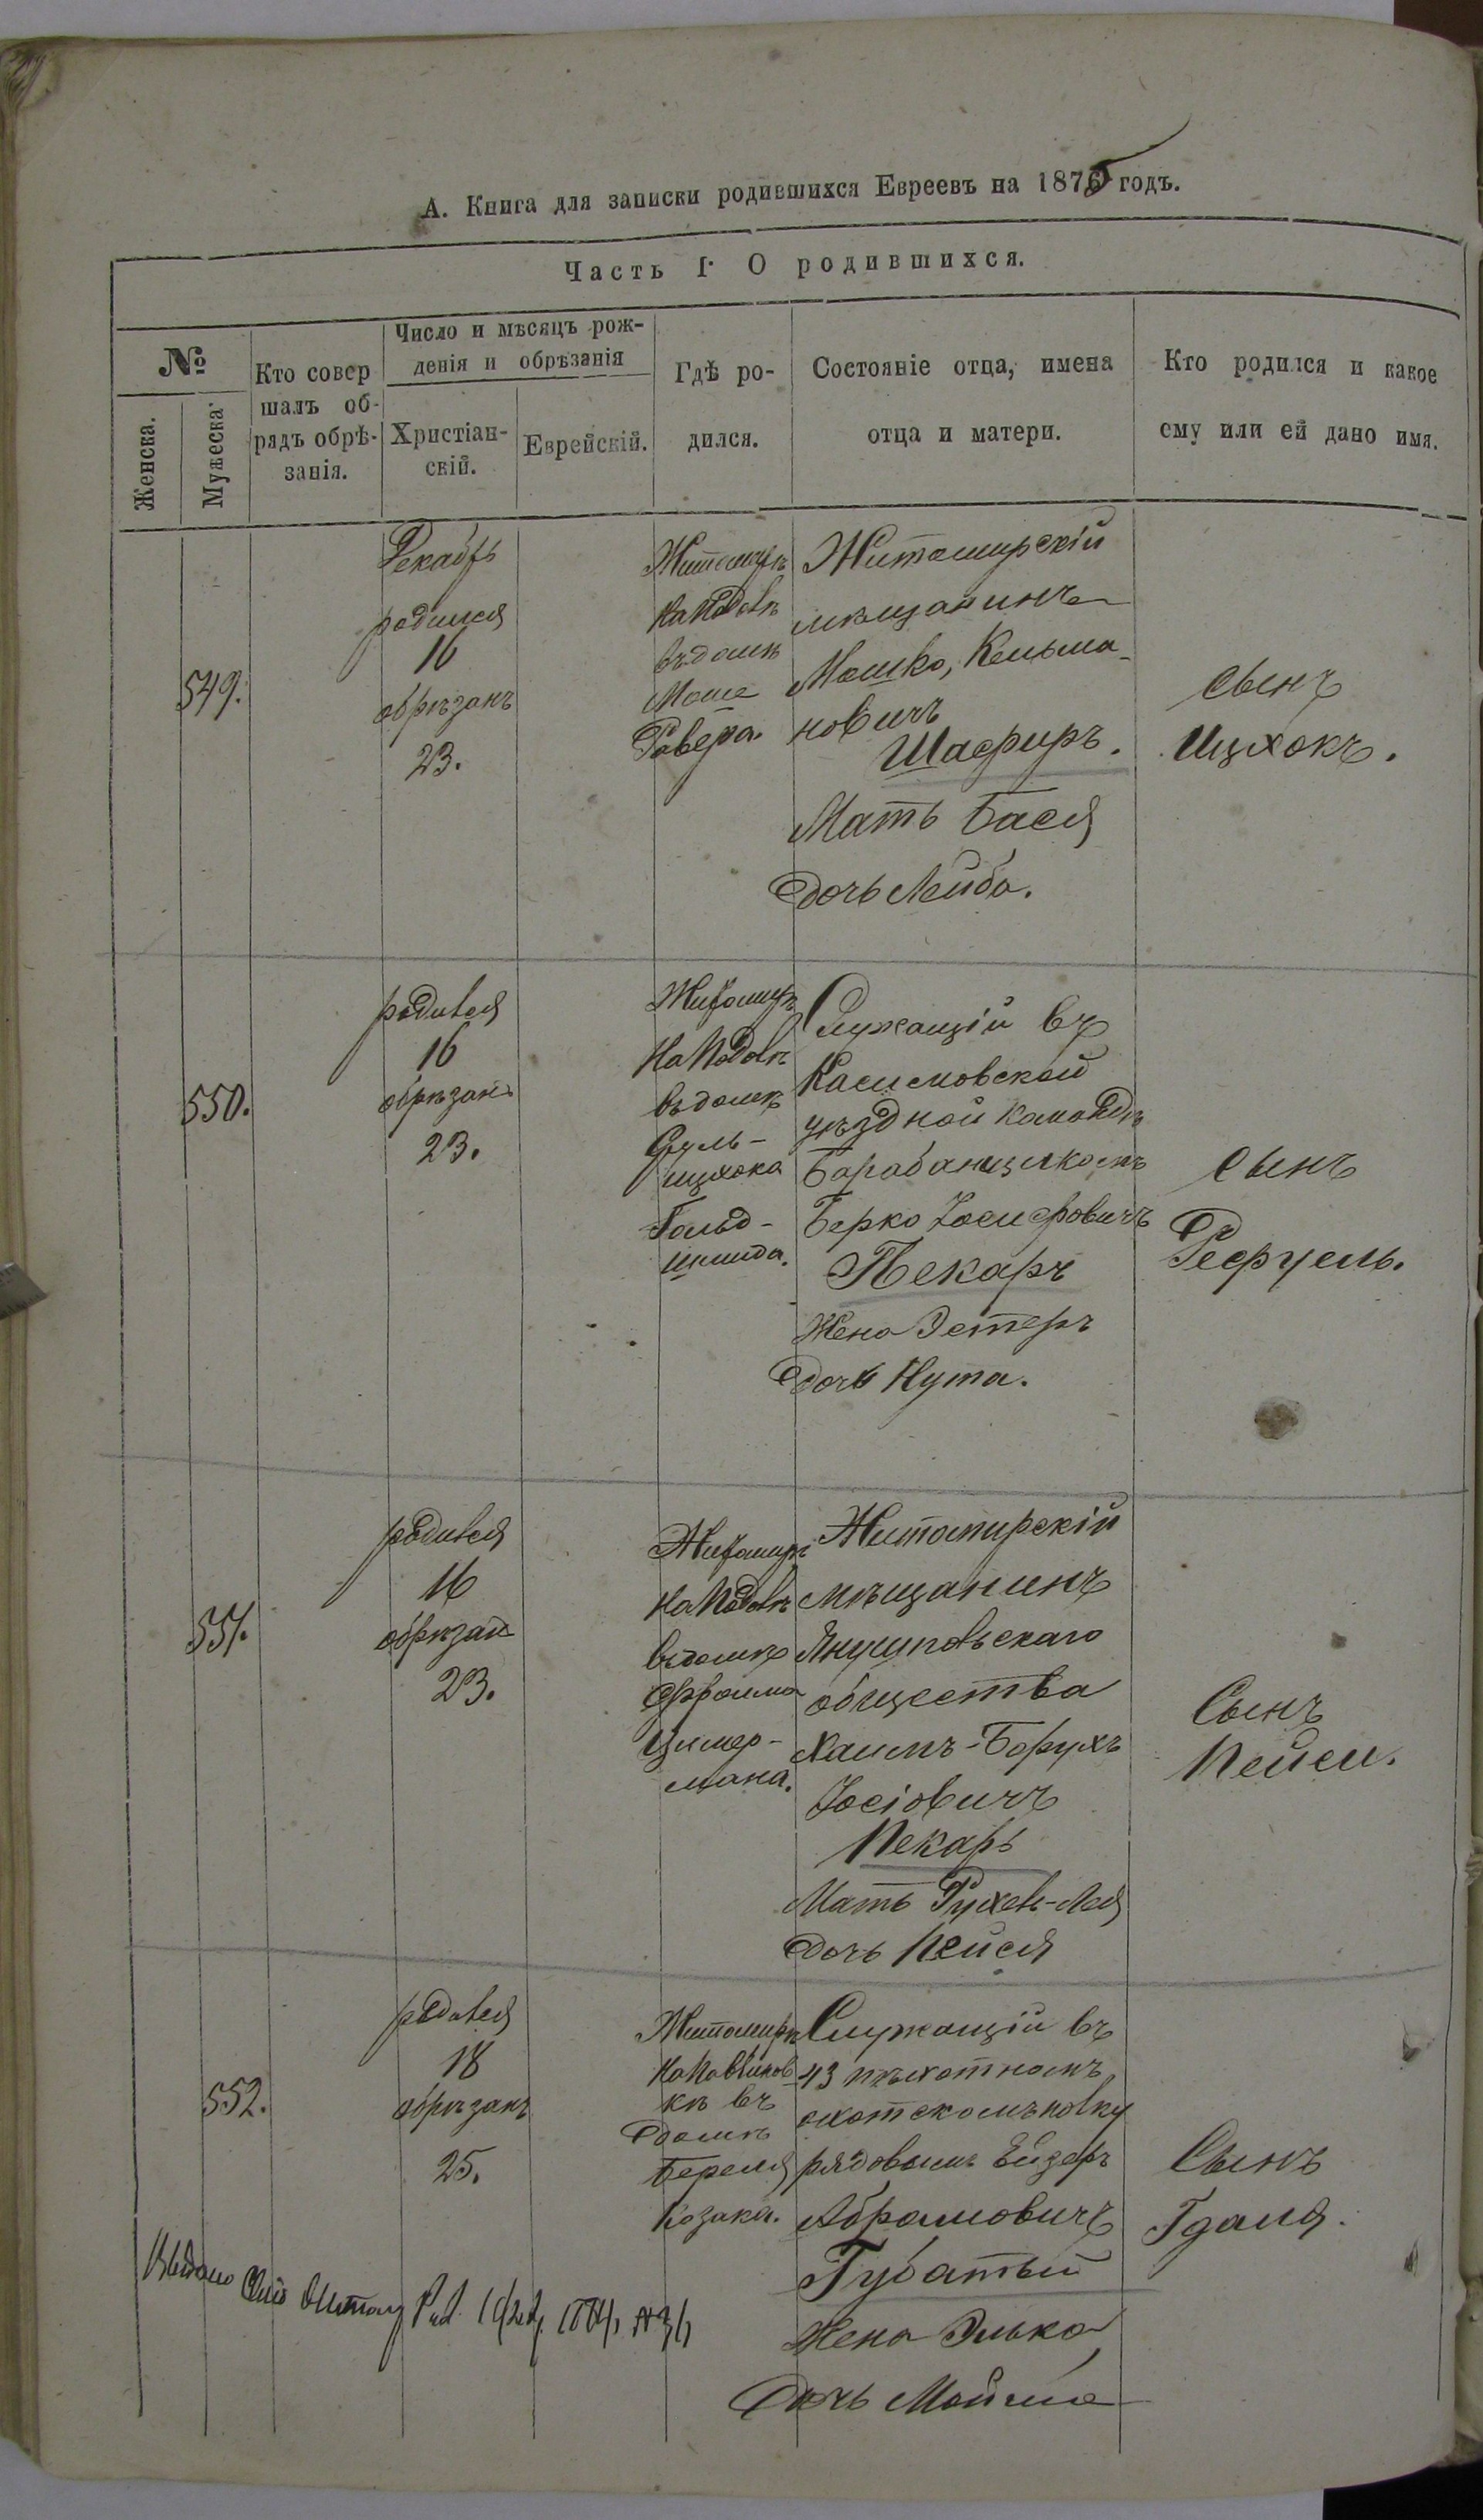 А. Книга для записки родившихся Евреевъ на 1875 годъ.
Часть I. О родившихся.
№
Женска.
Мужеска.
Кто совер
шалъ об-
рядъ обрѣ-
занія.
Число и мѣсяцъ рож-
денія и обрѣзанія
Христіан-
скій.
Еврейскій.
Гдѣ ро-
дился.
Состояніе отца, имена
отца и матери.
Кто родился и какое
ему или ей дано имя.
549.
Декабрь
родился
16
обрѣзанъ
23.
Житомирѣ
на Подолѣ
въ домѣ
Моше
Ровера.
Житомирскій
мѣщанинъ
Мошко, Кельма-
новичъ
Шасфиръ.
Мать Бася
дочь Лейба.
сынъ
Ицхокъ.
550.
родився
16
обрѣзанъ
23.
Житомирѣ
на Подолѣ
въ домѣ
Сруль-
ицхока
Гольд-
шмида.
Служащій въ
Касимовской
уѣздной командѣ
Барабанщикомъ
Берко Іосифовичъ
Пекаръ
Жена Эстеръ
дочь Нута.
сынъ
Рефуель.
551.
родився
16
обрѣзанъ
23.
Житомирѣ
на Подолѣ
въ домѣ
Ефроима
Цимер-
мана.
Житомирскій
мѣщанинъ
Янушповьскаго
общества
Хаимъ-Борухъ
Іосіовичъ
Пекарь
Мать Рухель-Лея
дочь Пейся
Сынъ
Пейси.
552.
родовся
18
обрѣзанъ
25.
Житомирѣ
на Павликов
кѣ въ
домѣ
Береля
Козака.
Служащій въ
43 пѣхотномъ
охотскомъ полку
рядовымъ Ейзеръ
Абрамовичъ
Губатый
Жена Элька
дочь Мойше
Сынъ
Гдаля.
Выдано